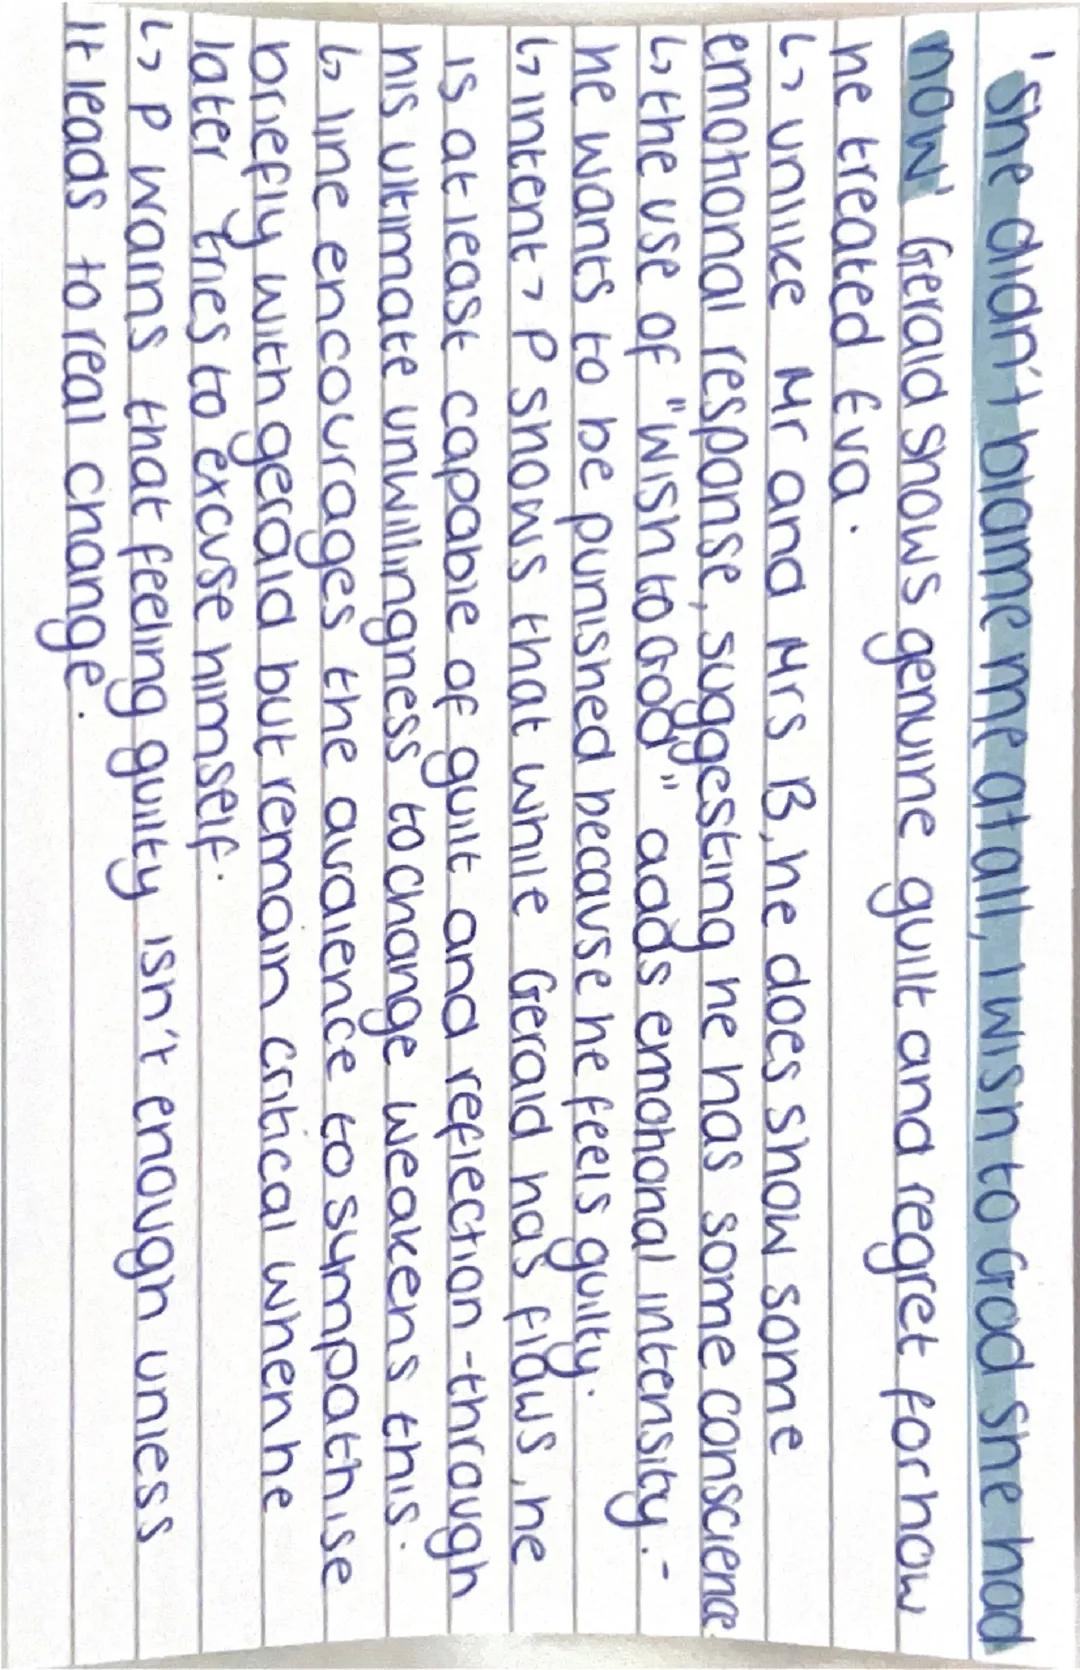 'She didn't blame me at all, I wish to God she had
now' Gerald shows genuine guilt and regret for how
he treated Eva.
↳ unlike Mr and Mrs B, he does show some
emotional response, suggesting he has some conscience
↳ the use of "wish to God" adds emotional intensity.-
he wants to be punished because he feels guilty.
↳ intent > P shows that while Gerald has flaws, he
is at least capable of guilt and reflection - through
his ultimate unwillingness to change weakens this.
↳ line encourages the audience to sympathise
briefly with gerald but remain critical when he
later tries to excuse himself.
↳ P warns that feeling guilty isn't enough unless
it leads to real change.